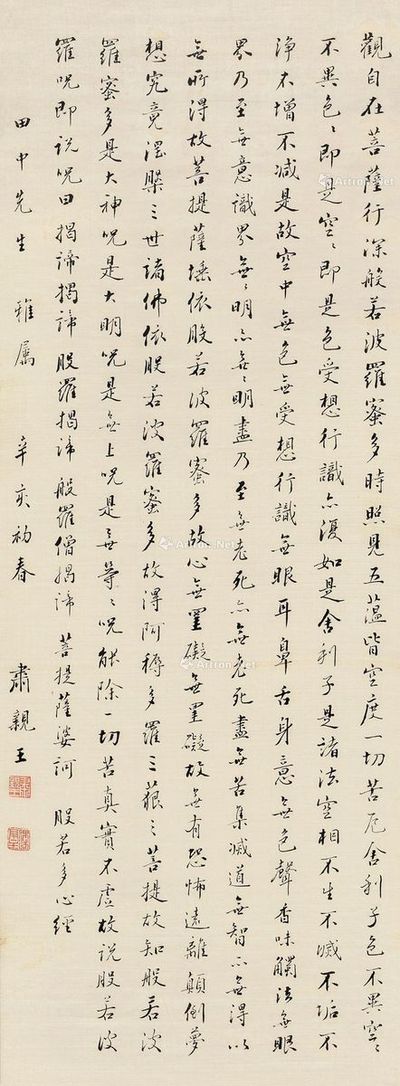 觀自在菩薩行深般若波羅蜜多時照見五蘊皆空度一切苦厄舍利子色不異空〻
不異色〻即是空〻即是色受想行識亦復如是舍利子是諸法空相不生不滅不垢不
淨不增不減是故空中無色無受想行識無眼耳鼻舌身意無色聲香味觸法無眼
界乃至無意識界無〻明亦無〻明盡乃至無老死亦無老死盡無苦集滅道無智亦無得以
無所得故菩提薩埵依般若波羅蜜多故心無罣礙無罣礙故無有恐怖遠離顛倒夢
想究竟涅槃三世諸佛依般若波羅蜜多故得阿耨多羅三藐三菩提故知般若波
羅蜜多是大神呪是大明呪是無上呪是無等〻呪能除一切苦真實不虛故說般若波
羅呪即說呪曰揭諦揭諦般羅揭諦般羅僧揭諦 菩提薩婆訶 般若多心經
田中先生 雅属 辛亥初春 肅親王
Artron.Net